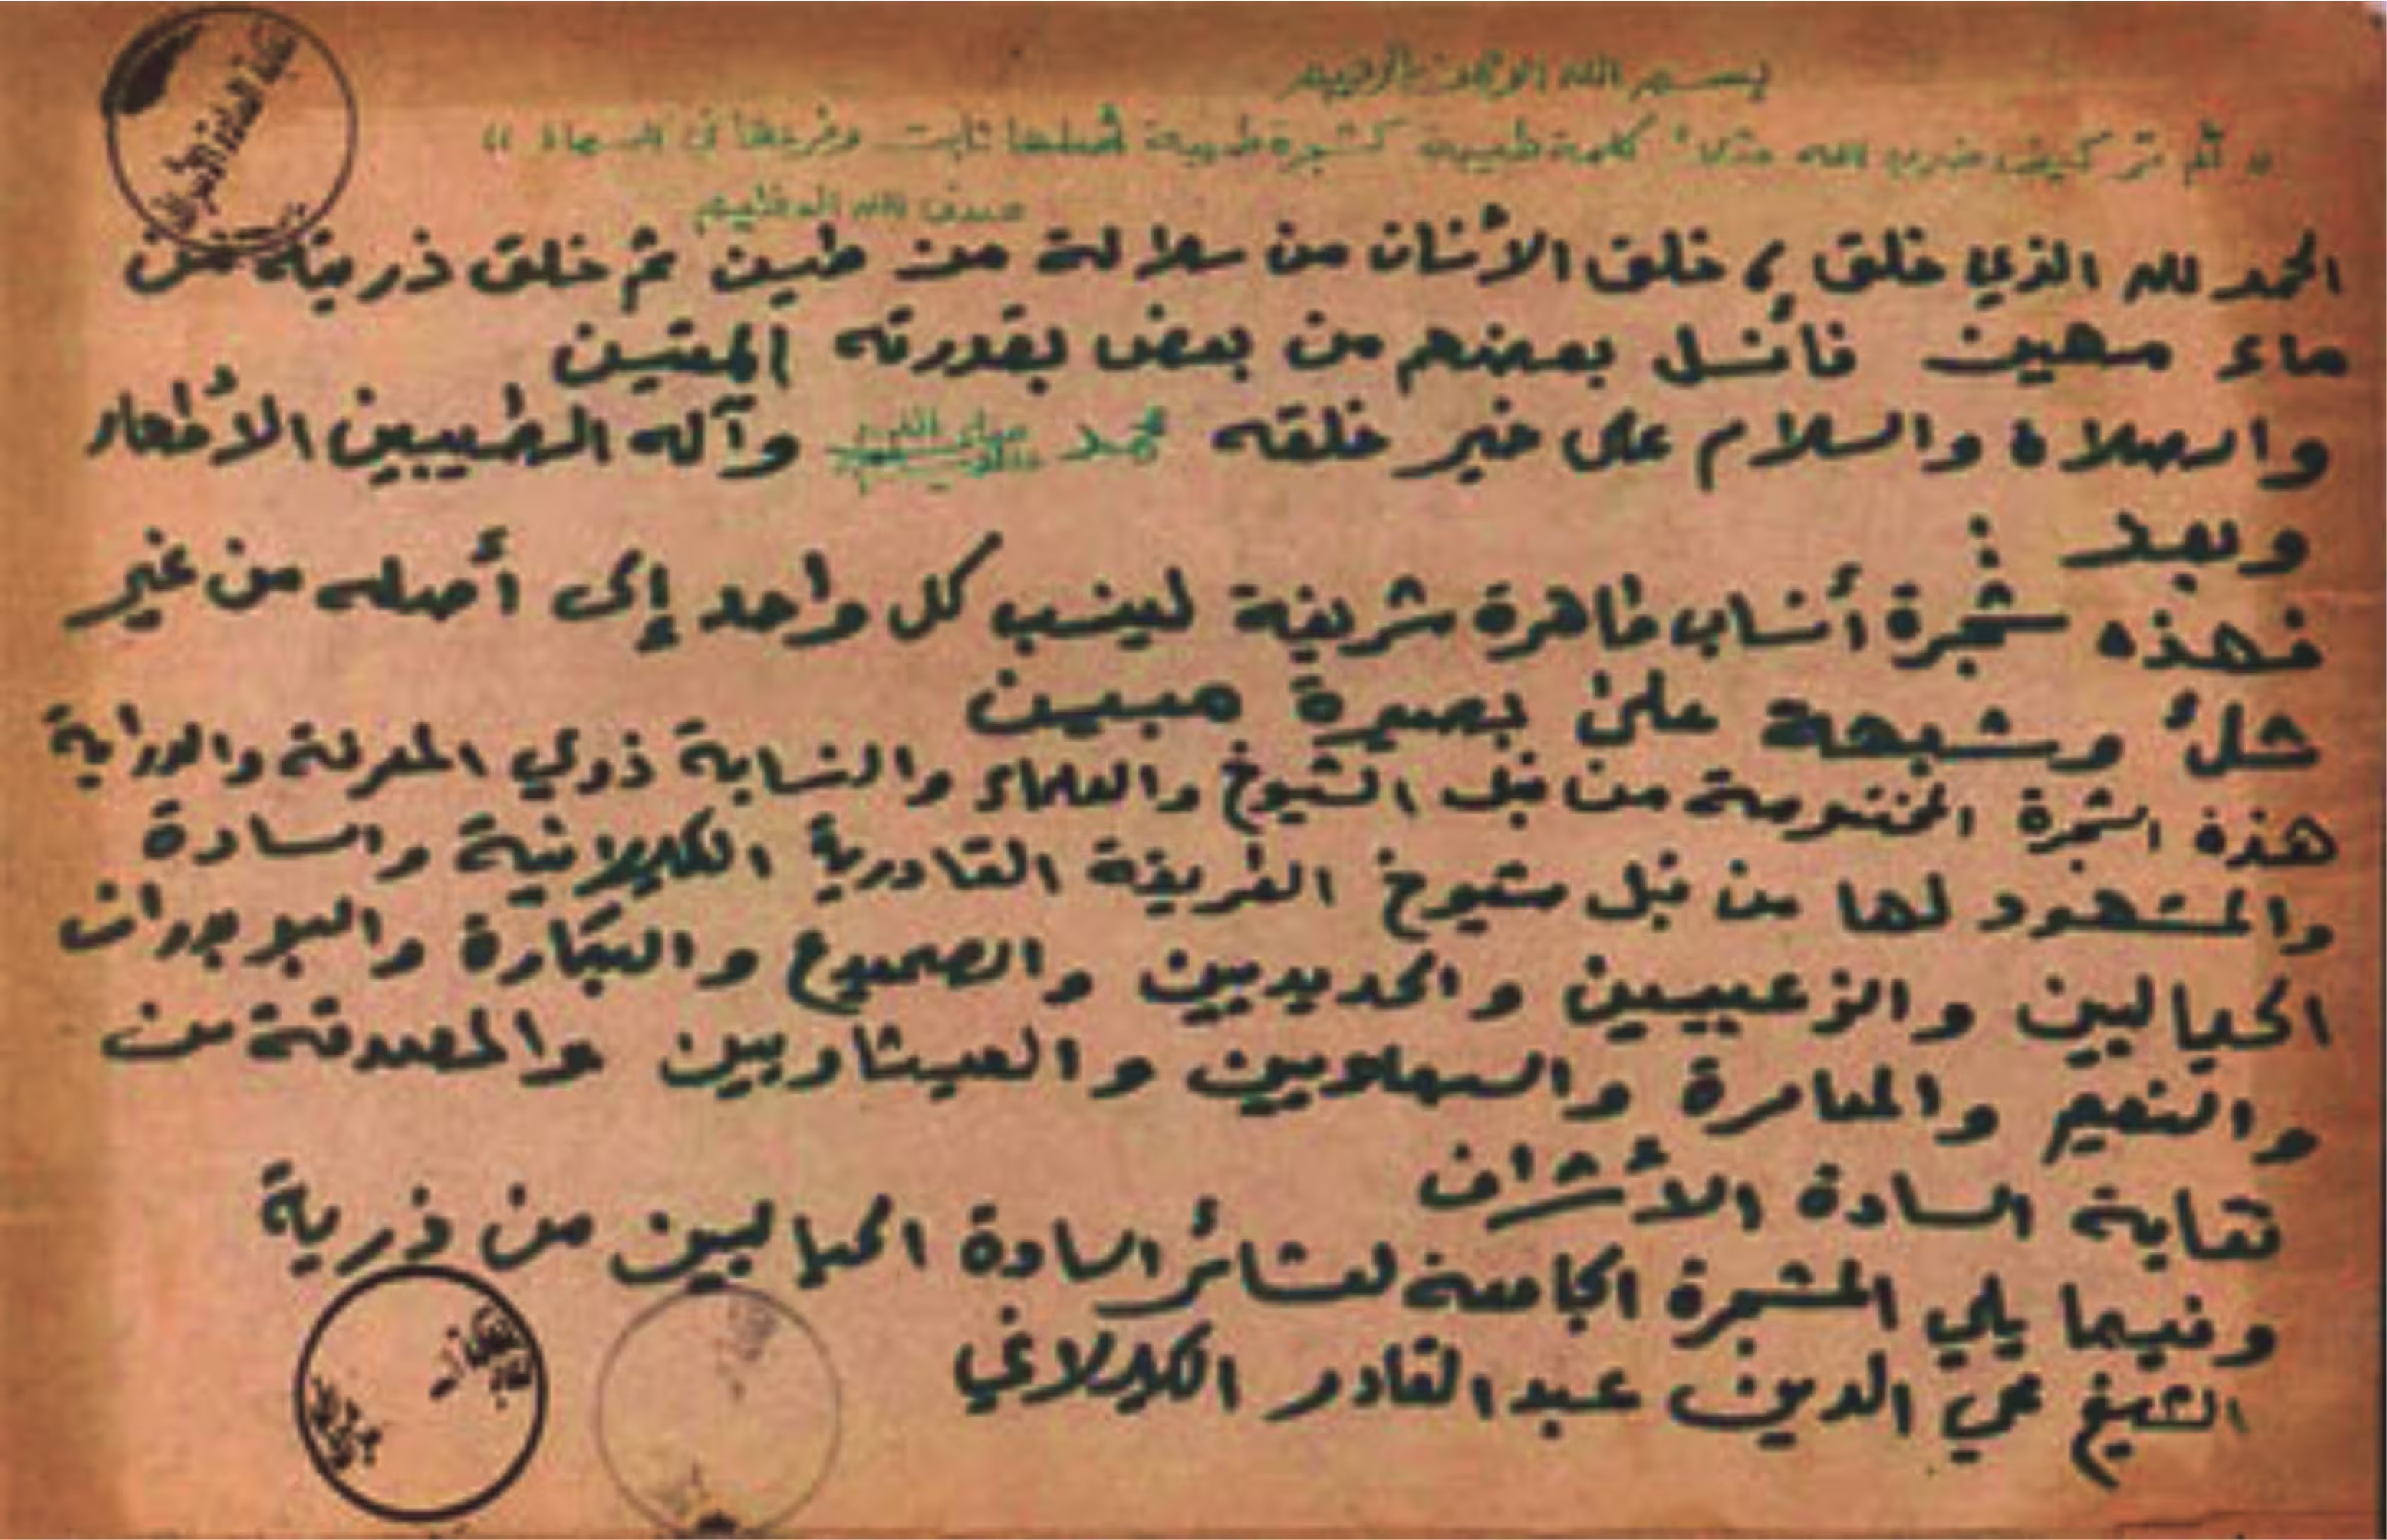 بسم الله الرحمن الرحيم
" ألم تر كيف ضرب الله مثلاً كلمة طيبة كشجرة طيبة أصلها ثابت وفرعها في السماء "
صدق الله العظيم
الحمد لله الذي خلق، خلق الأنسان من سلالة من طين ثم خلق ذريته من
ماء مهين فأنسل بعضهم من بعض بقدرته المتين
والصلاة والسلام على خير خلقه محمد صلى الله عليه وسلم وآله الطيبين الأطهار
وبعد :
فهذه شجرة أنساب طاهرة شريفة لينسب كل واحد إلى أصله من غير
شك وشبهة على بصيرة مبين
هذه الشجرة المختومة من قبل الشيوخ والعلماء والنسابة ذوي المعرفة والدراية
والمشهود لها من قبل مشيوخ الطريقة القادرية الكيلانية والسادة
الحياليين والزعبيين والحديديين والصميدع والبكارة والبوبدران
والنعيم والمعامرة والسماويين والعيثاويين والمصدقة من
نقابة السادة الأشراف
وفيما يلي المشجرة الجامعة لعشائر السادة الحياليين من ذرية
الشيخ محي الدين عبد القادر الكيلاني